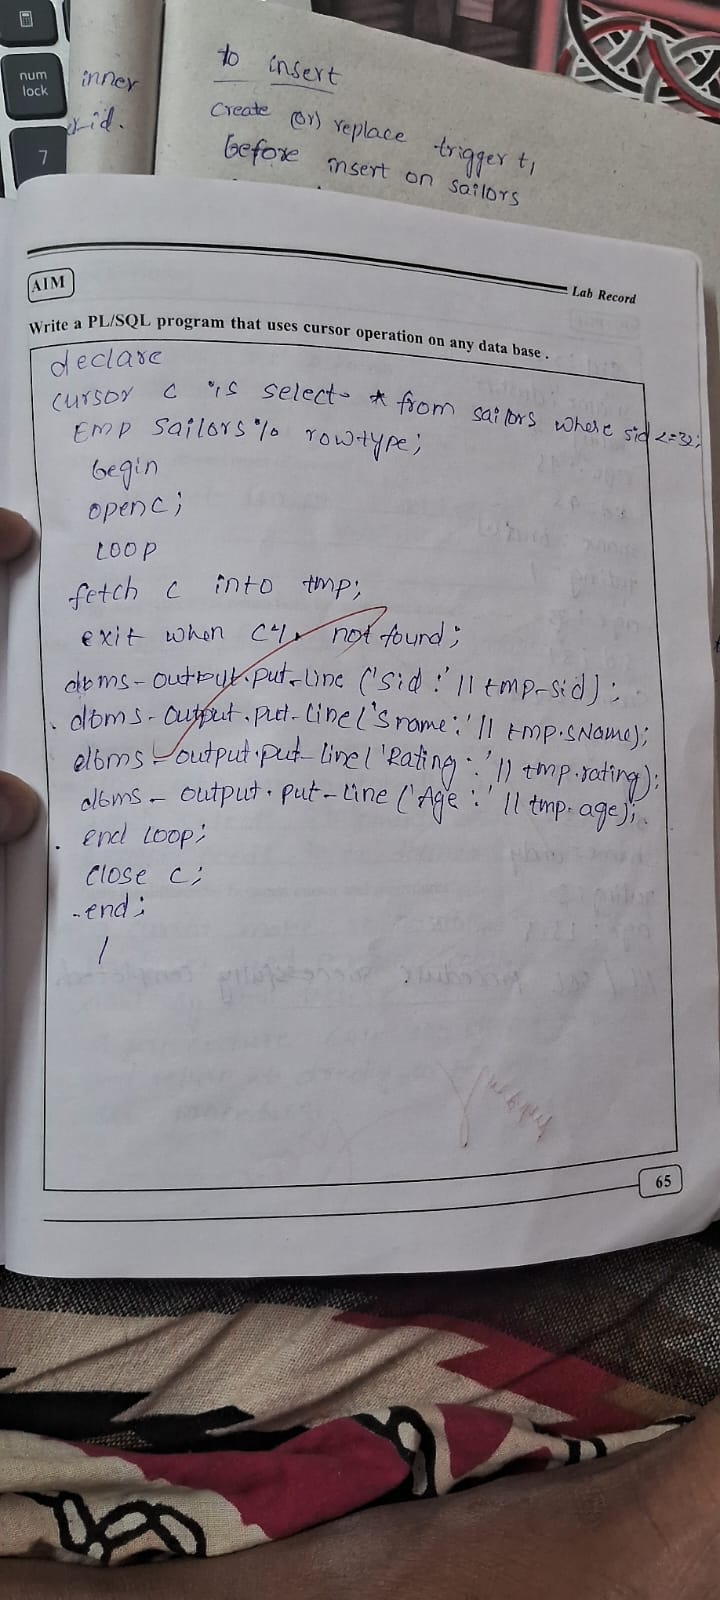 num
lock
7
inner
r-id.
to insert
Create (or) replace trigger t1
before insert on sailors
Lab Record
AIM
Write a PL/SQL program that uses cursor operation on any data base .
declare
cursor c is select * from sailors where sid <=32;
Emp sailors % rowtype;
begin
open c;
LOOP
fetch c into tmp;
exit when c% not found;
dbms-output.put-line ('sid :' || tmp-sid);
dbms-output.put-line ('Sname:' || tmp.sName);
dbms-output.put-line ('Rating :' || tmp.rating);
dbms-output.put-line ('Age :' || tmp.age);
end loop;
close c;
end;
/
65